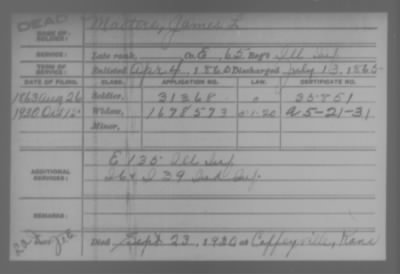 DEAD
NAME OF SOLDIER: Masters, James L.
SERVICE: Late rank, Co. E, 65 Reg't Ill Inf
TERM OF SERVICE: Enlisted Apr 4, 1860 Discharged July 13, 1865
DATE OF FILING. CLASS. APPLICATION NO. LAW. CERTIFICATE NO.
1863 Aug 26 Soldier, 31368 35851
1930 Oct 15 Widow, 1678573 5-1-20 A 5-21-31
Minor,
ADDITIONAL SERVICES: E 135 Ill Inf
I 39 Ind Inf
REMARKS:
Died Sept 23, 1930 at Coffeyville, Kans